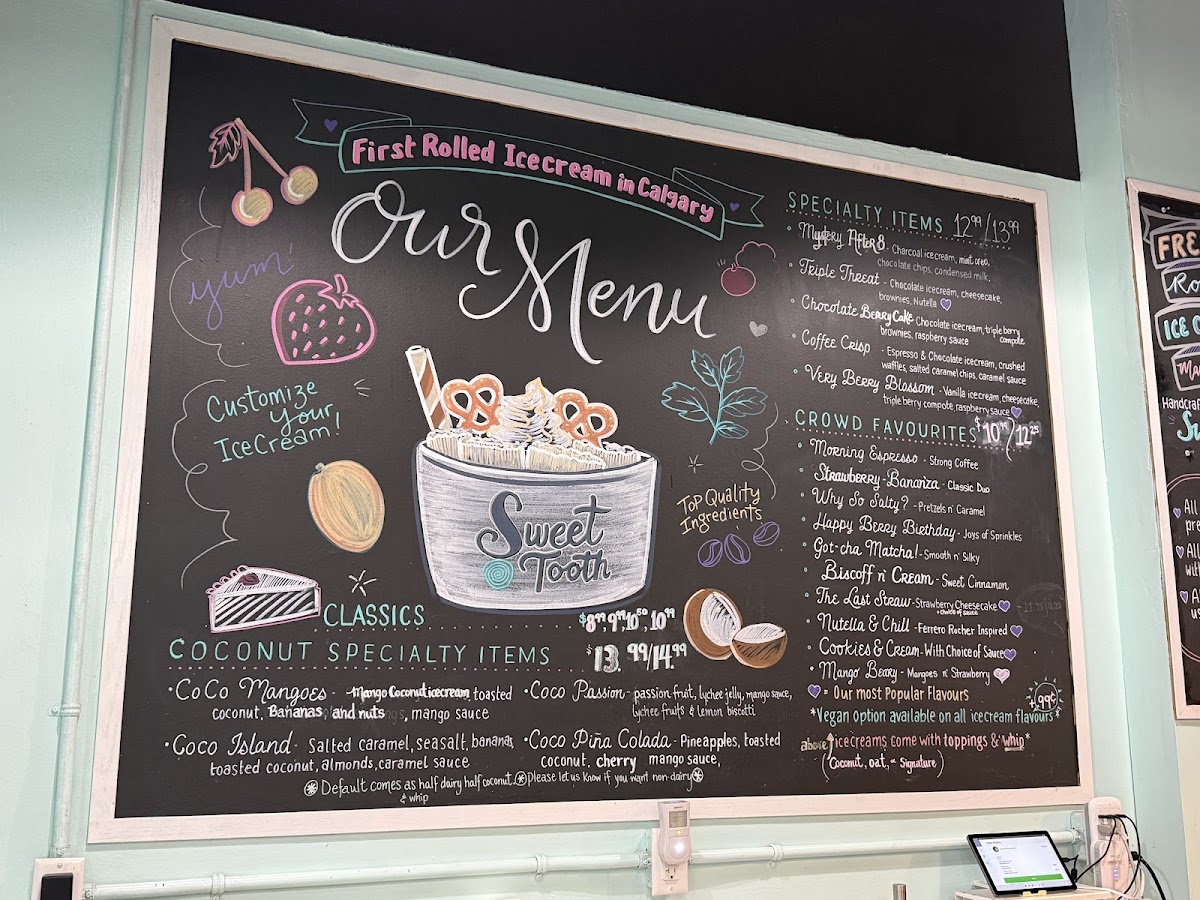 First Rolled Icecream in Calgary
Our Menu
yum!
Customize
Your
IceCream!
Sweet
Tooth
Top Quality
Ingredients
CLASSICS $8.99, 9.99, 10.50, 10.99
COCONUT SPECIALTY ITEMS $13.99/14.99
• CoCo Mangoes - Mango Coconut icecream, toasted
coconut, Bananas and nuts, mango sauce
• Coco Island - Salted caramel, sea salt, bananas,
toasted coconut, almonds, caramel sauce
• Coco Passion - passion fruit, lychee jelly, mango sauce,
lychee fruits & lemon biscotti
• Coco Piña Colada - Pineapples, toasted
coconut, cherry mango sauce,
Default comes as half dairy half coconut. Please let us know if you want non-dairy
& whip
SPECIALTY ITEMS 12.99/13.99
• Mystery After 8 - Charcoal icecream, mint oreo,
chocolate chips, condensed milk,
• Triple Threat - Chocolate icecream, cheesecake,
brownies, Nutella
• Chocolate Berry Cake Chocolate icecream, triple berry
compote
brownies, raspberry sauce
• Coffee Crisp - Espresso & Chocolate icecream, crushed
waffles, salted caramel chips, caramel sauce
• Very Berry Blossom - Vanilla icecream, cheesecake,
triple berry compote, raspberry sauce
CROWD FAVOURITES $10.99/12.25
• Morning Espresso - Strong Coffee
• Strawberry-Bananza - Classic Duo
• Why So Salty? - Pretzels n' Caramel
• Happy Berry Birthday - Joys of Sprinkles
• Got-cha Matcha! - Smooth n' Silky
• Biscoff n' Cream - Sweet Cinnamon
• The Last Straw - Strawberry Cheesecake
+ choice of sauce
• Nutella & Chill - Ferrero Rocher Inspired
• Cookies & Cream - With Choice of Sauce
• Mango Berry - Mangoes n' Strawberry
= Our most Popular Flavours
*Vegan option available on all icecream flavours*
+.99¢
above icecreams come with toppings & whip*
(Coconut, oat, or Signature)
FRE
Ro
ICE C
Ma
Handcraf
All
pre
All
with
A
us